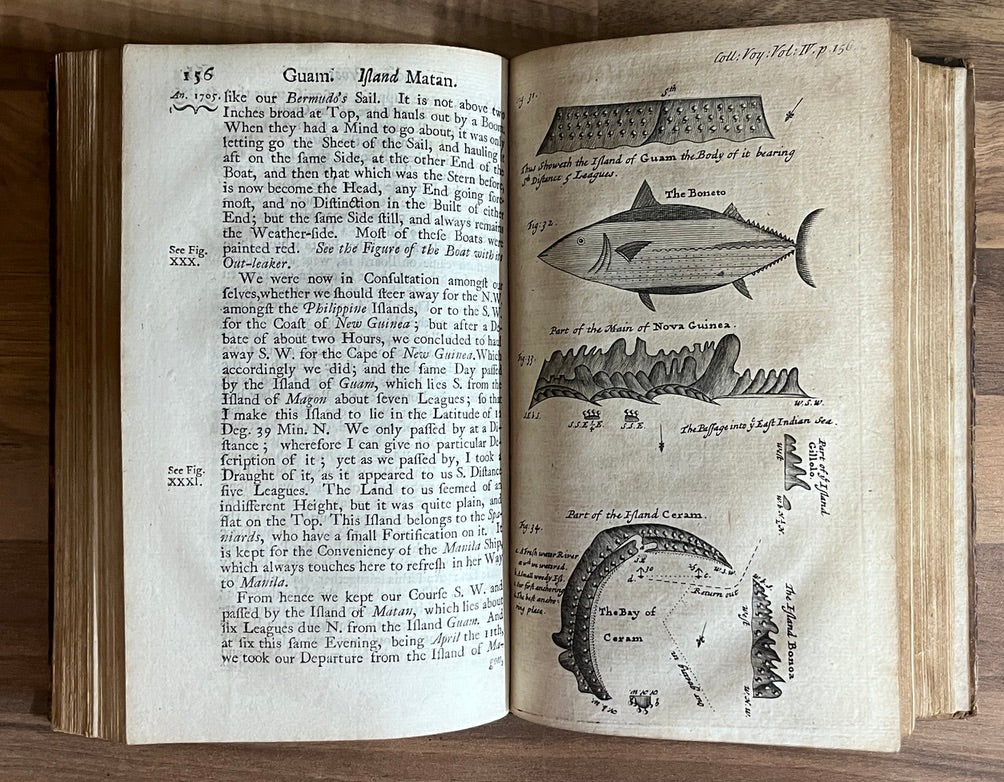 156 Guam. Iſland Matan.
An. 1705. like our Bermudo's Sail. It is not above two
Inches broad at Top, and hauls out by a Boom.
When they had a Mind to go about, it was only
letting go the Sheet of the Sail, and hauling it
aft on the ſame Side, at the other End of the
Boat, and then that which was the Stern before
is now become the Head, any End going fore-
moſt, and no Diſtinction in the Built of either
End; but the ſame Side ſtill, and always remains
the Weather-ſide. Moſt of theſe Boats were
See Fig. XXX. painted red. See the Figure of the Boat with its
Out-leaker.
We were now in Conſultation amongſt our
ſelves, whether we ſhould ſteer away for the N.W.
amongſt the Philippine Iſlands, or to the S.W.
for the Coaſt of New Guinea; but after a De-
bate of about two Hours, we concluded to haul
away S. W. for the Cape of New Guinea. Which
accordingly we did; and the ſame Day paſſed
by the Iſland of Guam, which lies S. from the
Iſland of Magon about ſeven Leagues; ſo that
I make this Iſland to lie in the Latitude of
Deg. 39 Min. N. We only paſſed by at a Di-
ſtance; wherefore I can give no particular De-
ſcription of it; yet as we paſſed by, I took a
See Fig. XXXI. Draught of it, as it appeared to us S. Diſtance
five Leagues. The Land to us ſeemed of an
indifferent Height, but it was quite plain, and
flat on the Top. This Iſland belongs to the Spa-
niards, who have a ſmall Fortification on it. It
is kept for the Conveniency of the Manila Ship,
which always touches here to refreſh in her Way
to Manila.
From hence we kept our Courſe S. W. and
paſſed by the Iſland of Matan, which lies about
ſix Leagues due N. from the Iſland Guam. And
at ſix this ſame Evening, being April the 11th,
we took our Departure from the Iſland of Ma-
gon,
Coll: Voy. Vol: IV. p. 156
Fig: 31.
5th
Thus Showeth the Iſland of Guam the Body of it bearing
Diſtance 5 Leagues.
The Boneto
Fig: 32
Part of the Main of Nova Guinea.
Fig: 33
S.E.b.S.
S.S.E.
W.S.W.
The Paſſage into ye Eaſt Indian Sea.
Part of ye Iſland
Gillolo.
Weſt
Part of the Iſland Ceram.
Fig: 34.
a. A freſh water River
b. A ſmall woody Iſl.
our firſt anchoring
The beſt ancho-
ring place.
W.S.W.
Return out
The Bay of
Ceram
Our going in
The Iſland Bonoa
Weſt
W.N.W.